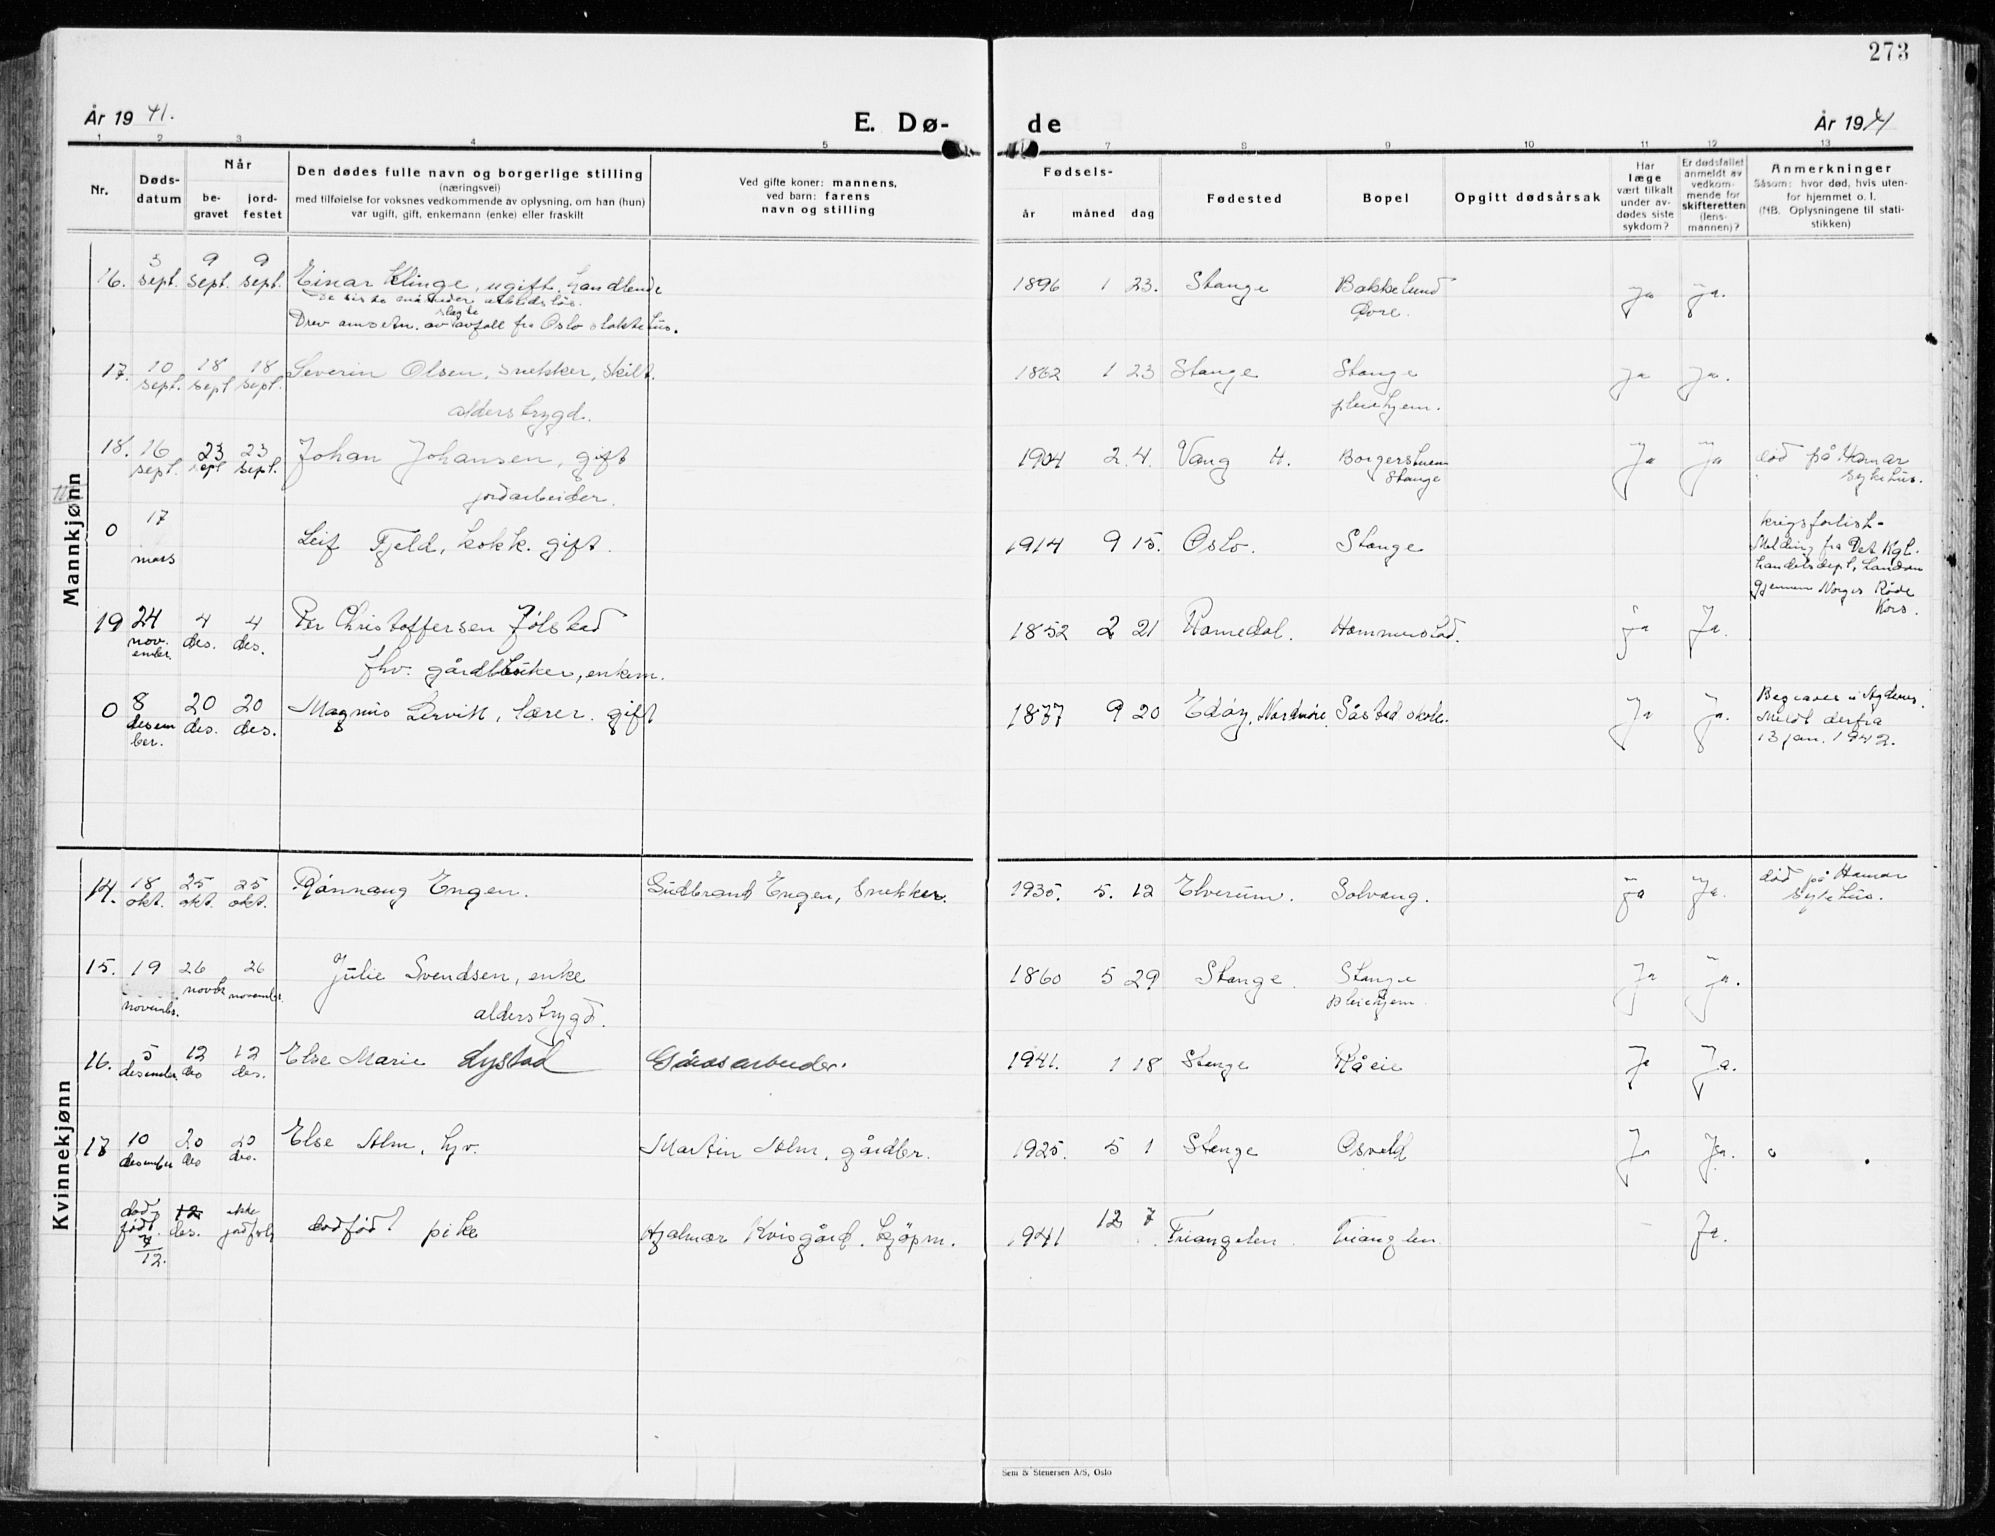 273
År 1941.
E. Dø-
de
År 1941
1 2 3 4 5 7 8 9 10 11 12 13
Nr.
Døds-
datum
Når
be-
gravet
jord-
festet
Den dødes fulle navn og borgerlige stilling
(næringsvei)
med tilføielse for voksnes vedkommende av oplysning, om han (hun)
var ugift, gift, enkemann (enke) eller fraskilt
Ved gifte koner: mannens,
ved barn: farens
navn og stilling
Fødsels-
år måned dag
Fødested
Bopel
Opgitt dødsårsak
Har
læge
vært tilkalt
under av-
dødes siste
sykdom?
Er dødsfallet
anmeldt av
vedkom-
mende for
skifteretten
(lens-
mannen)?
Anmerkninger
Såsom: hvor død, hvis uten-
for hjemmet o. l.
(NB. Oplysningene til stati-
stikken)
Mannkjønn
16. 3 sept. 9 sept. 9 sept. Einar Klinge, ugift, handlende 1896 1 23. Stange Bakkelund Ja Ja.
De siste måneder arbeidsløs.
Øvre.
slagte
Drev omsetn. av avfall fra Oslo slaktehus.
17. 10 sept. 18 sept 18 sept. Severin Olsen, snekker, skilt. 1862 1 23 Stange Stange Ja Ja.
alderstrygd. pleiehjem.
18. 16 sept. 23 sept 23 sept. Johan Johansen, gift 1904 2. 4. Vang H. Ja Ja død på Hamar
jordarbeider. Stange sykehus.
0 17 mars Leif Fjeld, kokk. gift. 1914 9 15. Oslo. Stange krigsforlist-
Melding fra Det Kgl.
handelsdept, London
gjennem Norges Røde
Kors.
19 24 november. 4 des. 4 des. Per Christoffersen Jølstad 1852 2 21 Romedal. Hammerstad. Ja Ja.
fhv. gårdbruker, enkem.
0 8 desember. 20 des. 20 des. Magnus Lervik, lærer. gift 1877 9 20 Edøy, Nordmøre. Såstad skole. Ja Ja. Begraves i Agdenes.
Meldt derfra
13 jan. 1942.
Kvinnekjønn
14. 18 okt. 25 okt. 25 okt. Rønnaug Engen. Gudbrand Engen, snekker. 1935. 5. 12 Elverum. Solvang. Ja Ja. død på Hamar
sykehus.
15. 19 november. 26 novbr 26 november. Julie Svendsen, enke 1860 5 29 Stange. Stange Ja Ja.
alderstrygd. pleiehjem
16. 5 desember. 12 des 12 des. Else Marie Lystad Gårdsarbeider. 1941. 1 18 Stange Råeie Ja Ja.
17 10 desember 20 des 20 des. Else Alm, hjv. Martin Alm, gårdbr. 1925. 5 1 Stange Ja Ja.
død-
født 7/12. 12 des. ikke
jordf. dødfødt pike Hjalmar Kvisgård. kjøpm. 1941 12 7 Triangelen. Trianglen. Ja.
Sem & Stenersen A/S, Oslo